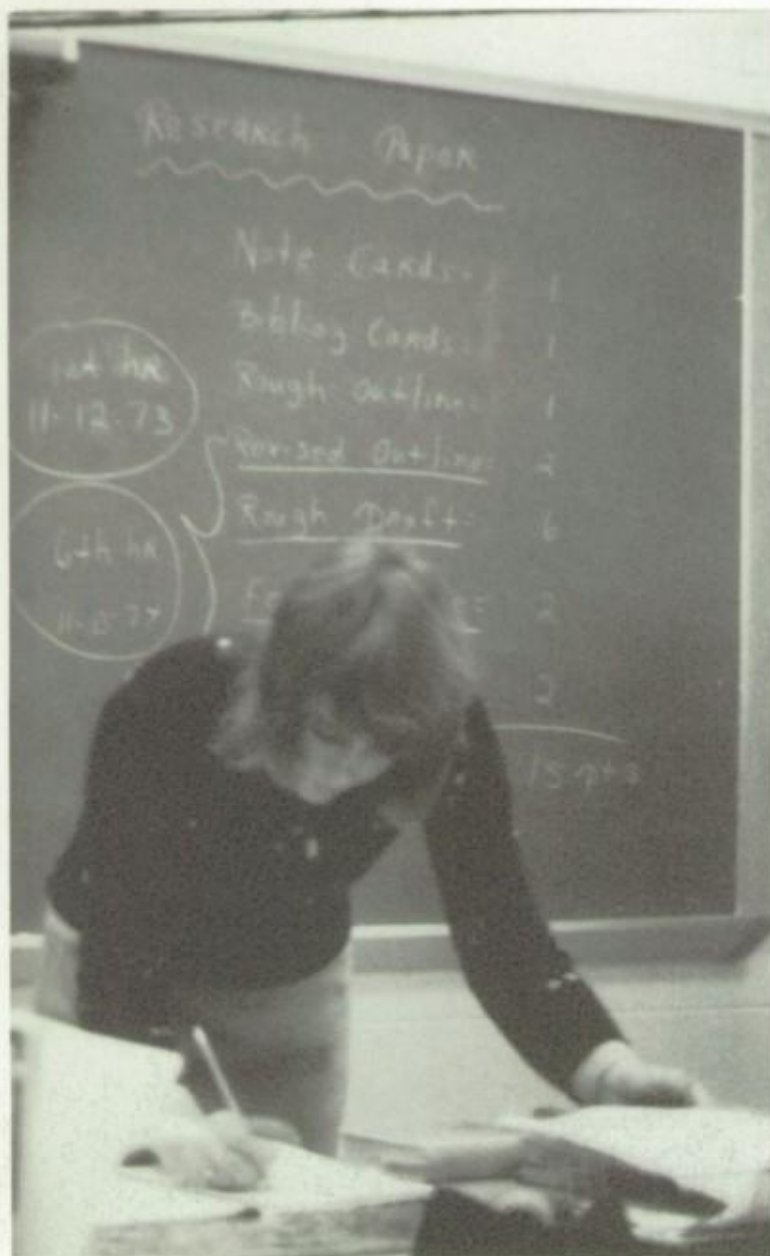 Research Paper
Note Cards= 1
Bibliog Cards= 1
Rough Outline= 1
Revised Outline= 2
Rough Draft= 6
2
2
15 pts
1st hr
11-12-73
6th hr